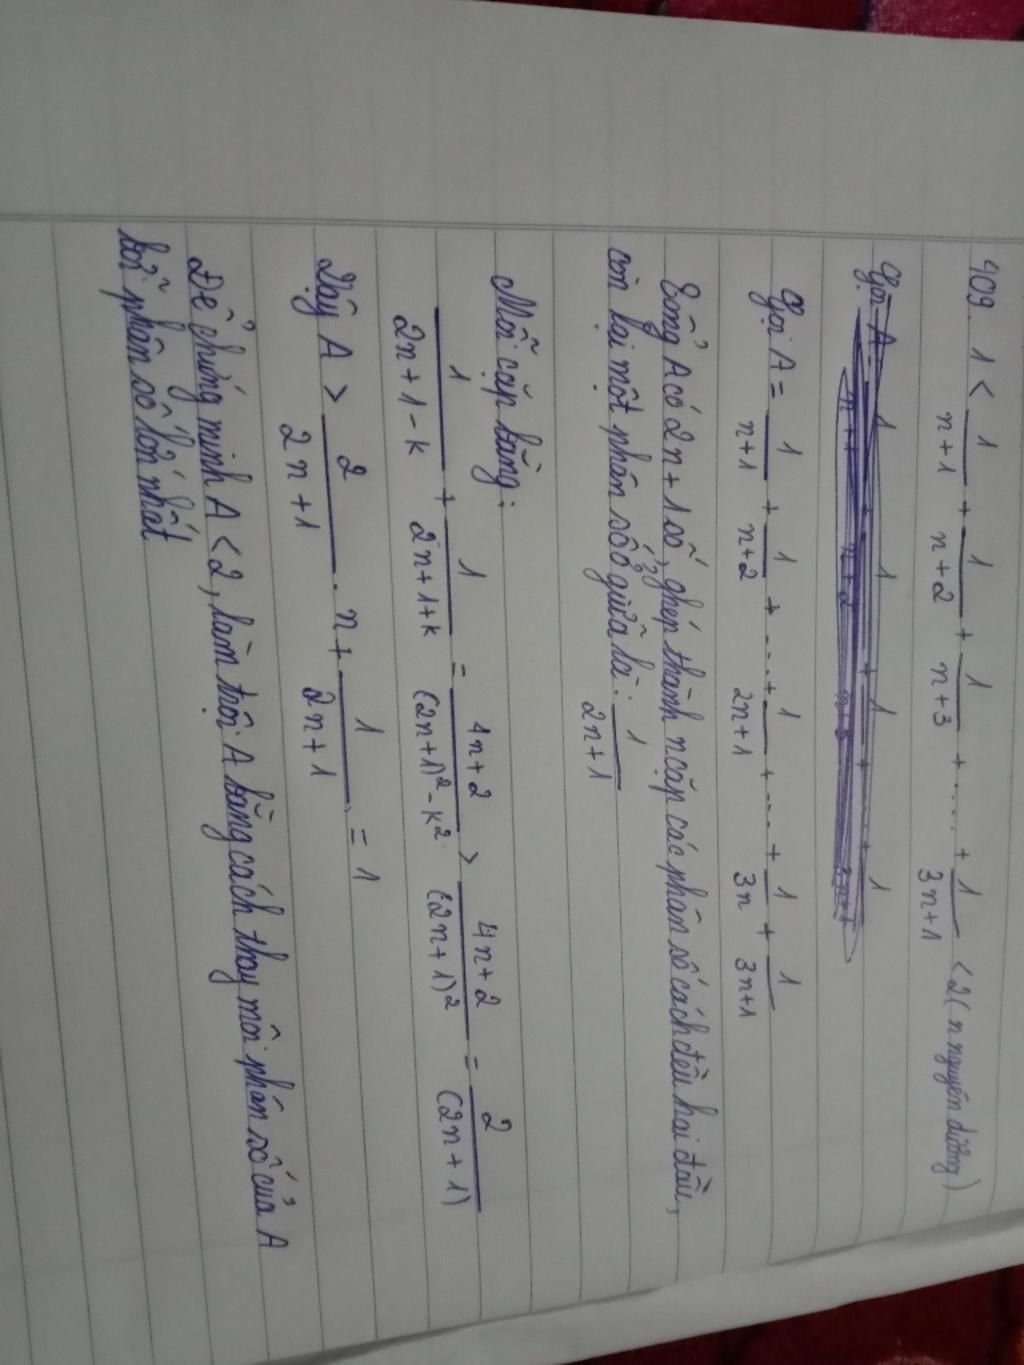 409. 1 < 1/(n+1) + 1/(n+2) + 1/(n+3) + ..... + 1/(3n+1) < 2 (n nguyên dương)
Gọi A = 1/(n+1) + 1/(n+2) + .... + 1/(2n+1) + .... + 1/(3n) + 1/(3n+1)
Tổng A có 2n+1 số, ghép thành n cặp các phân số cách đều hai đầu,
còn lại một phân số ở giữa là: 1/(2n+1)
Mỗi cặp bằng:
1/(2n+1-k) + 1/(2n+1+k) = (4n+2)/((2n+1)²-k²) > (4n+2)/(2n+1)² = 2/(2n+1)
Vậy A > 2/(2n+1) . n + 1/(2n+1) = 1
Để chứng minh A < 2, làm trội A bằng cách thay mỗi phân số của A
bởi phân số lớn nhất